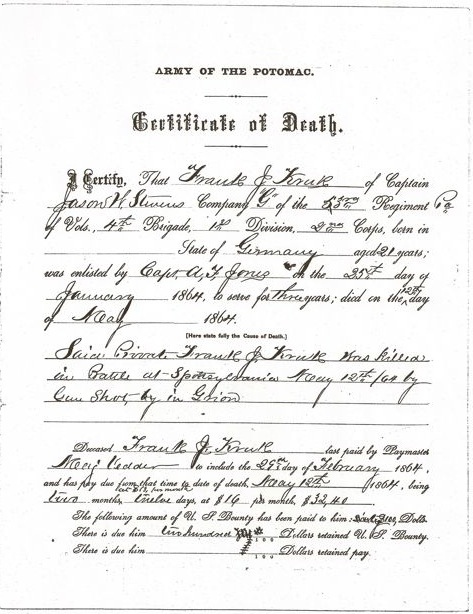 ARMY OF THE POTOMAC.
Certificate of Death.
I Certify, That Frank J Kruk of Captain
Jason W Stevens Company "G" of the 53rd Regiment Pa
of Vols., 4th Brigade, 1st Division, 2nd Corps, born in
State of Germany aged 21 years;
was enlisted by Capt. A, T Jones on the 25th day of
January 1864, to serve for three years; died on the 12th day
of May 1864.
[Here state fully the Cause of Death.]
Said Private Frank J Kruk was killed
in Battle at Spottsylvania May 12th/64 by
Gun Shot, by in
Deceased Frank J. Kruk last paid by Paymaster
Maj Vedder to include the 29th day of February 1864,
and has pay due from that time to date of death, May 12th 1864, being
two months, twelve days, at $16 per month, $32,40
The following amount of U. S. Bounty has been paid to him: Dolls.
There is due him two hundred 100 Dollars retained U. S. Bounty.
There is due him 100 Dollars retained pay.